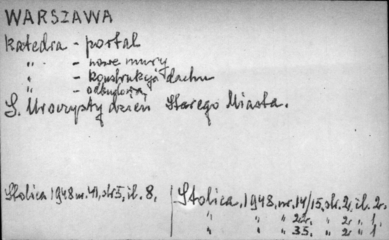 WARSZAWA
Katedra - portal
" - nowe mury
" - konstrukcja dachu
" - odbudowa
S. Uroczysty dzień Starego Miasta.
Stolica 1948 nr. 41, str 5, il. 8.
Stolica, 1948, nr. 14/15, str. 2, il. 2.
" " " 24. " 2 " 1.
" " " 35. " 2 " 1.